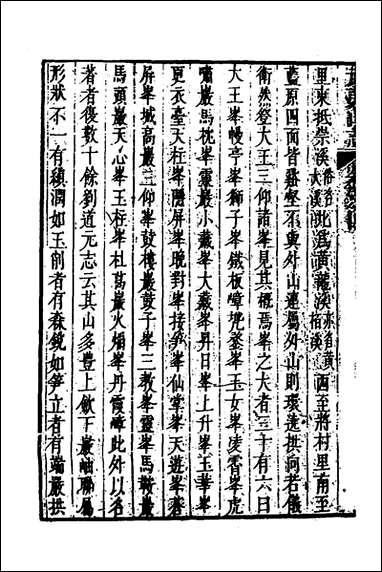 里東抵崇溪亦名大溪北爲黃龍溪亦名黃柏溪西至將村里南至
藍原四面皆谿壑不與外山連屬外山則環遶拱向若儀
衛然登大王三仰諸峯見其概焉峯之大者三十有六曰
大王峯幔亭峯獅子峯鐵板嶂兜鍪峯玉女峯凌霄峯虎
嘯巖馬枕峯靈巖小藏峯大藏峯昇日峯上升峯玉華峯
更衣臺天柱峯隱屏峯晚對峯接笋峯仙掌峯天遊峯蒼
屏峯城高巖三仰峯鼓樓巖鼓子峯三教峯靈峯馬鞍巖
馬頭巖天心峯玉柱峯杜葛巖火焰峯丹霞嶂此外以名
著者復數十餘劉道元志云其山多豐上歛下巖岫聯屬
形狀不一有縝潤如玉削者有森銳如笋立者有端嚴拱